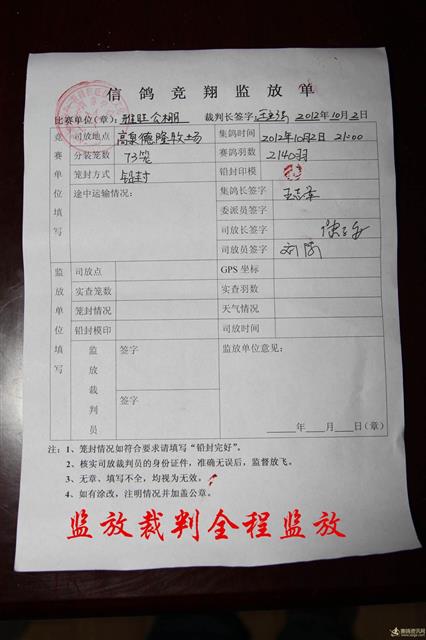 信鸽竞翔监放单
比赛单位(章): 雅旺公棚 裁判长签字: 2012年10月2日
竞赛单位填写 司放地点 高泉德隆牧场 集鸽时间 2012年10月2日 21:00
分装笼数 73笼 赛鸽羽数 2140羽
笼封方式 铅封 铅封印模
途中运输情况: 集鸽长签字
委派员签字
司放长签字
司放员签字 刘
监放单位填写 司放点 GPS 坐标
实查笼数 实查羽数
笼封情况 天气情况
铅封模印 司放时间
监放裁判员 签字 监放单位意见:
签字
年 月 日(章)
注: 1、笼封情况如符合要求请填写“铅封完好”。
2、核实司放裁判员的身份证件,准确无误后,监督放飞。
3、无章、填写不全,均视为无效。
4、如有涂改,注明情况并加盖公章。
监放裁判全程监放
赛鸽资讯网